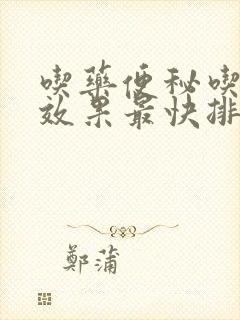 喫藥便秘喫
效果最快排
鄭蒲